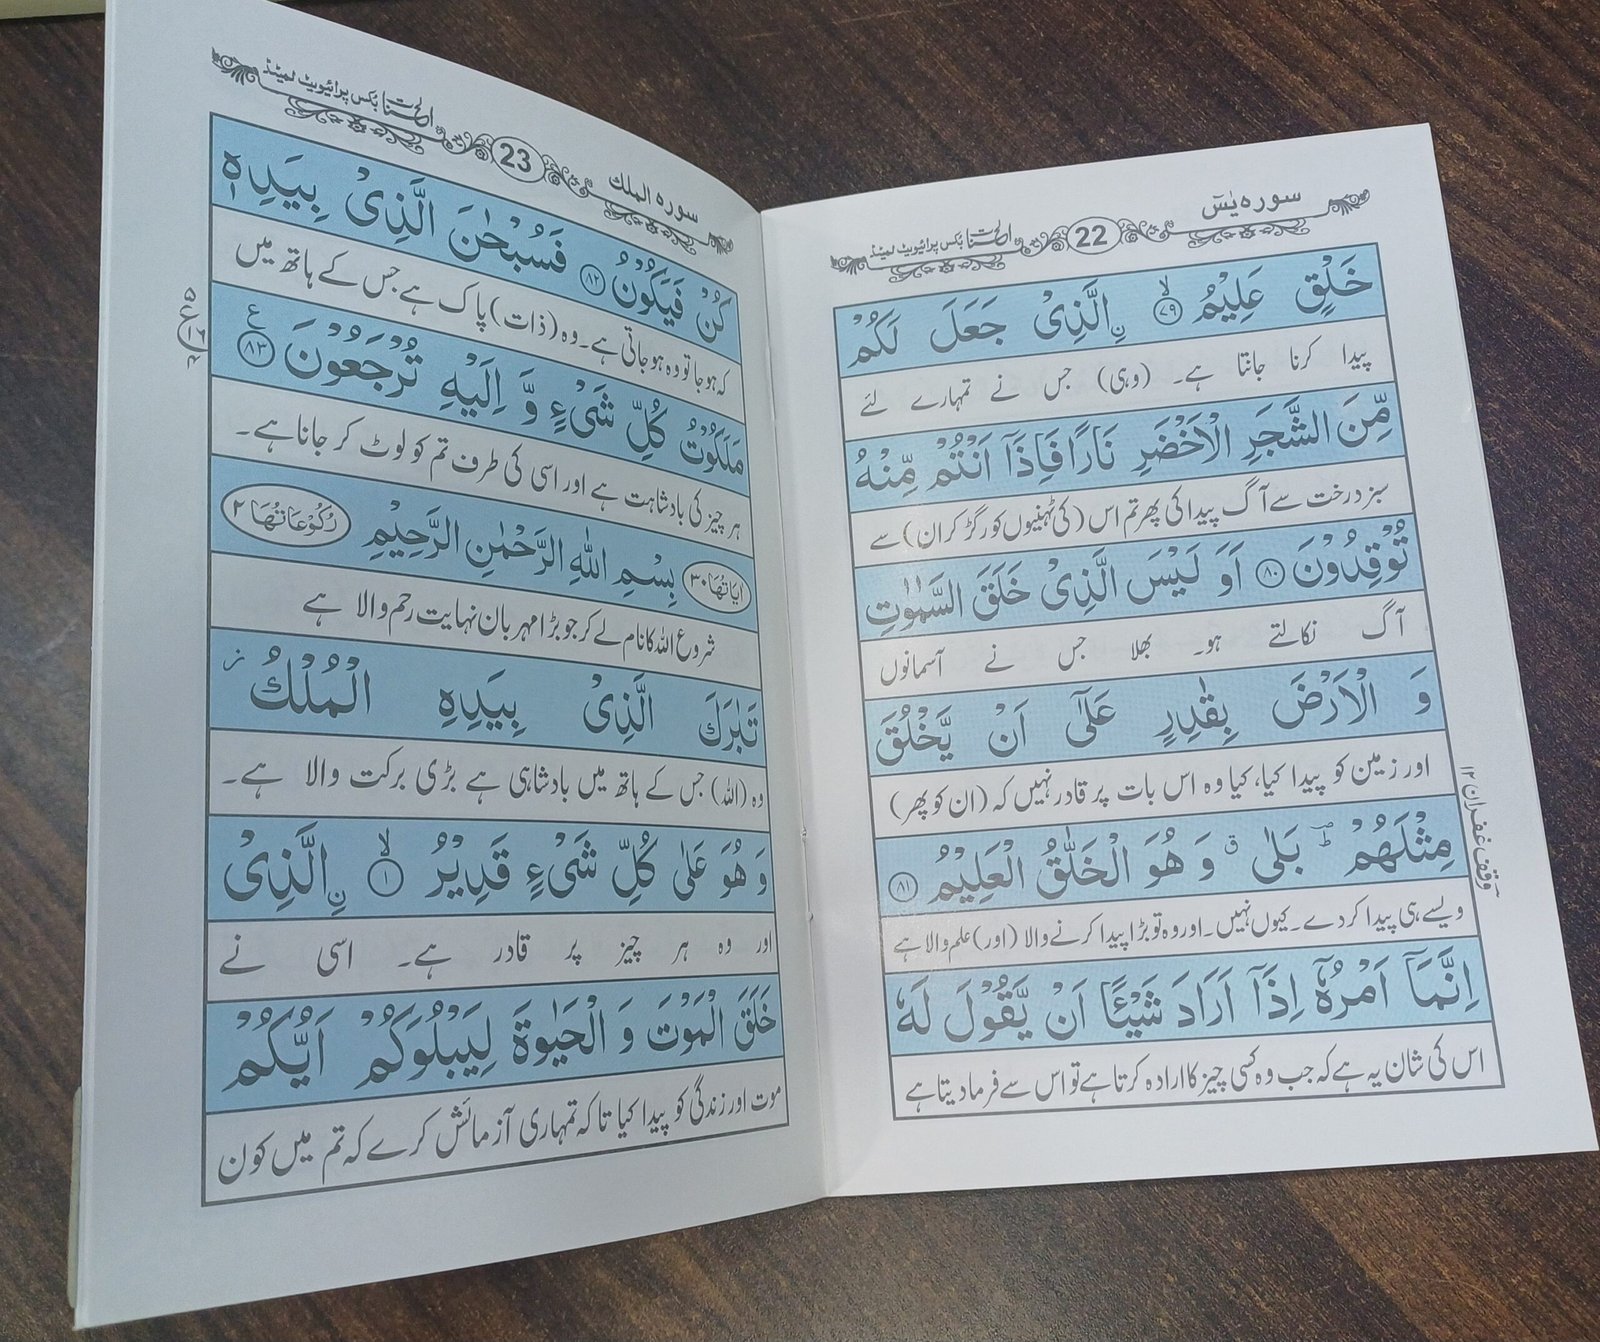 سورہ یٰسٓ
22
الحسنات بکس پرائیویٹ لمیٹڈ
خَلْقٍ عَلِيْمُ ۙ﴿۷۹﴾ ۨالَّذِيْ جَعَلَ لَكُمْ
پیدا کرنا جانتا ہے۔ (وہی) جس نے تمہارے لئے
مِّنَ الشَّجَرِ الْاَخْضَرِ نَارًا فَاِذَاۤ اَنْتُمْ مِّنْهُ
سبز درخت سے آگ پیدا کی پھر تم اس (کی ٹہنیوں کو رگڑ کر ان) سے
تُوْقِدُوْنَ ﴿۸۰﴾ اَوَ لَيْسَ الَّذِيْ خَلَقَ السَّمٰوٰتِ
آگ نکالتے ہو۔ بھلا جس نے آسمانوں
وَ الْاَرْضَ بِقٰدِرٍ عَلٰۤى اَنْ يَّخْلُقَ
اور زمین کو پیدا کیا، کیا وہ اس بات پر قادر نہیں کہ (ان کو پھر)
مِثْلَهُمْ ؕ بَلٰى ۗ وَ هُوَ الْخَلّٰقُ الْعَلِيْمُ ﴿۸۱﴾
ویسے ہی پیدا کر دے۔ کیوں نہیں۔ اور وہ تو بڑا پیدا کرنے والا (اور) علم والا ہے
اِنَّمَاۤ اَمْرُهٗۤ اِذَاۤ اَرَادَ شَيْـًٔا اَنْ يَّقُوْلَ لَهٗ
اس کی شان یہ ہے کہ جب وہ کسی چیز کا ارادہ کرتا ہے تو اس سے فرما دیتا ہے
وقف غفران ۱۲
سورہ الملک
23
الحسنات بکس پرائیویٹ لمیٹڈ
كُنْ فَيَكُوْنُ ﴿۸۲﴾ فَسُبْحٰنَ الَّذِيْ بِيَدِهٖ
کہ ہو جا تو وہ ہو جاتی ہے۔ وہ (ذات) پاک ہے جس کے ہاتھ میں
مَلَكُوْتُ كُلِّ شَيْءٍ وَّ اِلَيْهِ تُرْجَعُوْنَ ﴿۸۳﴾ ع
ہر چیز کی بادشاہت ہے اور اسی کی طرف تم کو لوٹ کر جانا ہے۔
اٰيَاتُهَا ۳۰ بِسْمِ اللّٰهِ الرَّحْمٰنِ الرَّحِيْمِ رُكُوْعَاتُهَا ۲
شروع اللہ کا نام لے کر جو بڑا مہربان نہایت رحم والا ہے
تَبٰرَكَ الَّذِيْ بِيَدِهِ الْمُلْكُ ز
وہ (اللہ) جس کے ہاتھ میں بادشاہی ہے بڑی برکت والا ہے۔
وَ هُوَ عَلٰى كُلِّ شَيْءٍ قَدِيْرُ ۙ﴿۱﴾ ۨالَّذِيْ
اور وہ ہر چیز پر قادر ہے۔ اسی نے
خَلَقَ الْمَوْتَ وَ الْحَيٰوةَ لِيَبْلُوَكُمْ اَيُّكُمْ
موت اور زندگی کو پیدا کیا تاکہ تمہاری آزمائش کرے کہ تم میں کون